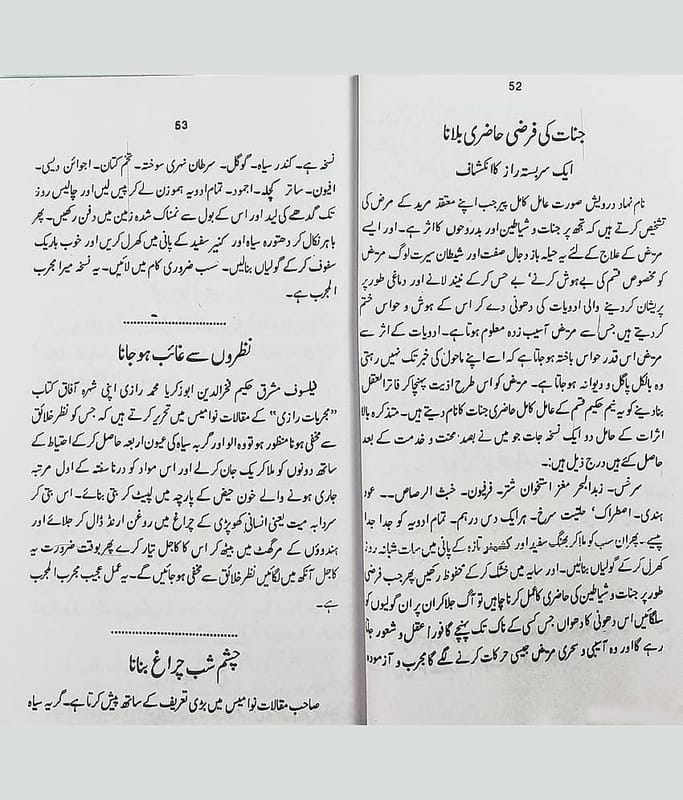 52
جنات کی فرضی حاضری بلانا
ایک سربستہ راز کا انکشاف
نام نہاد درویش صورت عامل کامل پیر جب اپنے معتقد مرید کے مرض کی
تشخیص کرتے ہیں کہ تجھ پر جنات و شیاطین اور بدروحوں کا اثر ہے۔ اور ایسے
مریض کے علاج کے لئے یہ حیلہ باز دجال صفت اور شیطان سیرت لوگ مریض
کو مخصوص قسم کی بے ہوش کرنے، بے حس کر کے نیند لانے اور دماغی طور پر
پریشان کر دینے والی ادویات کی دھونی دے کر اس کے ہوش و حواس ختم
کر دیتے ہیں جس سے مریض آسیب زدہ معلوم ہوتا ہے۔ ادویات کے اثر سے
مریض اس قدر حواس باختہ ہو جاتا ہے کہ اسے اپنے ماحول کی خبر تک نہیں رہتی
وہ بالکل پاگل و دیوانہ ہو جاتا ہے۔ مریض کو اس طرح اذیت پہنچا کر فاتر العقل
بنا دینے کو یہ نیم حکیم قسم کے عامل کامل حاضری جنات کا نام دیتے ہیں۔ متذکرہ بالا
اثرات کے حامل دو ایک نسخہ جات جو میں نے بصد محنت و خدمت کے بعد
حاصل کئے ہیں درج ذیل ہیں:۔
سرخس۔ زبد البحر مغز استخوان شتر۔ فرفیون۔ خبث الرصاص۔۔ عود
ہندی۔ اصطراک، حلتیت سرخ۔ ہر ایک دس درہم۔ تمام ادویہ کو جدا جدا
پیسے۔ پھر ان سب کو ملا کر بھنگ سفید اور کشنیز تازہ کے پانی میں سات شبانہ روز
کھرل کر کے گولیاں بنالیں۔ اور سایہ میں خشک کر کے محفوظ رکھیں پھر جب فرضی
طور پر جنات و شیاطین کی حاضری کا عمل کرنا چاہیں تو آگ جلا کر ان پر ان گولیوں کو
سلگائیں اس دھونی کا دھواں جس کسی کے ناک تک پہنچے گا فوراً عقل و شعور جاتا
رہے گا اور وہ آسیبی و سحری مریض جیسی حرکات کرنے لگے گا مجرب و آزمودہ
53
نسخہ ہے۔ کندر سیاہ۔ گوگل۔ سرطان نہری سوختہ۔ تخم کتان۔ اجوائن دیسی۔
افیون۔ ساتر کچلہ۔ اجمود۔ تمام ادویہ ہموزن لے کر پیس لیں اور چالیس روز
تک گدھے کی لید اور اس کے بول سے نمناک شدہ زمین میں دفن رکھیں۔ پھر
باہر نکال کر دھتورہ سیاہ اور کنیر سفید کے پانی میں کھرل کریں اور خوب باریک
سفوف کر کے گولیاں بنالیں۔ حسب ضروری کام میں لائیں۔ یہ نسخہ میرا مجرب
المجرب ہے۔
نظروں سے غائب ہو جانا
فیلسوف مشرق حکیم فخر الدین ابو زکریا محمد رازی اپنی شہرہ آفاق کتاب
"مجربات رازی" کے مقالات نوامیس میں تحریر کرتے ہیں کہ جس کو نظر خلائق
سے مخفی ہونا منظور ہو تو وہ الو اور گربہ سیاہ کی عیون اربعہ حاصل کر کے احتیاط کے
ساتھ دونوں کو ملا کر یک جان کر لے اور اس مواد کو درنا سفتہ کے اول مرتبہ
جاری ہونے والے خون حیض کے پارچہ میں لپیٹ کر بتی بنائے۔ اس بتی کر
سرداب میت یعنی انسانی کھوپڑی کے چراغ میں روغن ارنڈ ڈال کر جلائے اور
ہندوؤں کے مرگھٹ میں بیٹھ کر اس کا کاجل تیار کرے پھر بوقت ضرورت یہ
کاجل آنکھ میں لگائیں نظر خلائق سے مخفی ہو جائیں گے۔ یہ عمل عجیب مجرب المجرب
ہے۔
چشم شب چراغ بنانا
صاحب مقالات نوامیس میں بڑی تعریف کے ساتھ پیش کرتا ہے۔ گربہ سیاہ